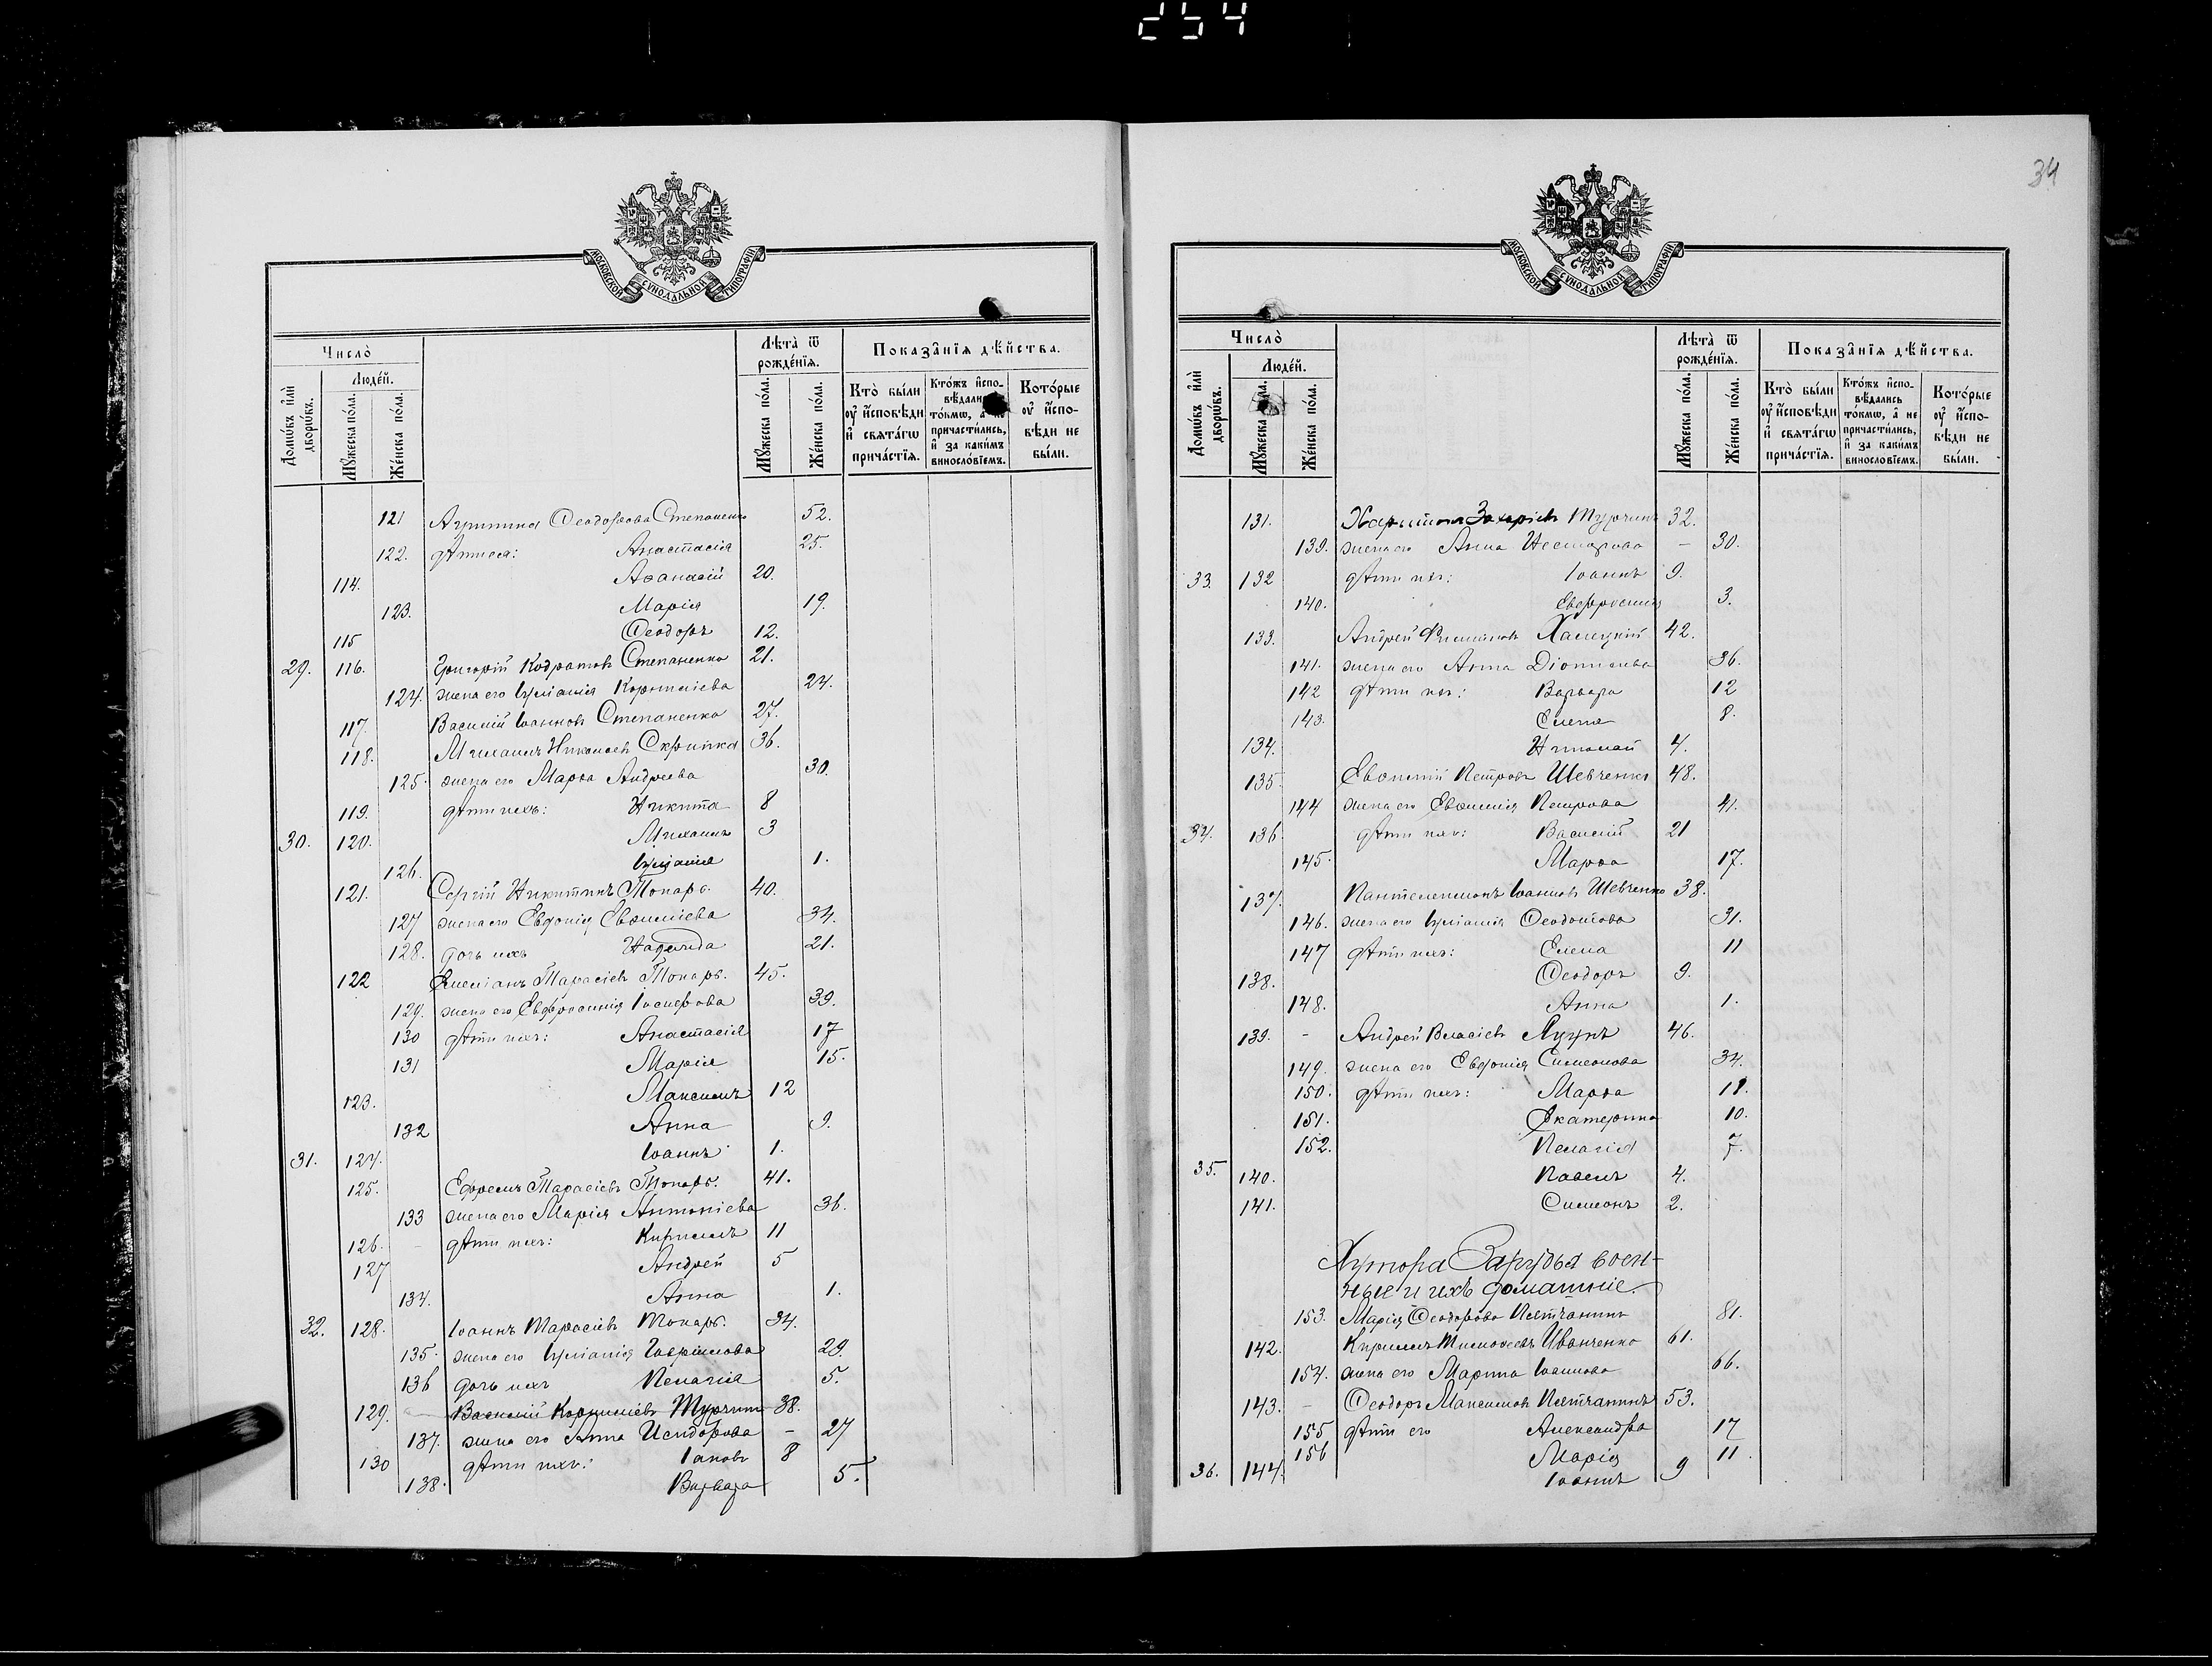 254
МОСКОВСКОЙ СѴНОДАЛЬНОЙ ТИПОГРАФІИ
Число̀
Людє́й.
Домѡ́въ и҆лѝ дворѡ́въ.
Мꙋ́жеска по́ла.
Же́нска по́ла.
Лѣта̀ ѿ рожде́нїѧ.
Мꙋ́жеска по́ла.
Же́нска по́ла.
Показа̑нїѧ дѣ́йства.
Кто̀ бы́ли оу҆ и҆́сповѣди и҆ свѧта́гѡ прича́стїѧ.
Кто́жъ и҆спо-вѣдались то́кмѡ, а҆ не причасти́лись, и҆ за каки́мъ винословїемъ.
Кото́рые оу҆ и҆́спо-вѣди не бы́ли.
121 Агрипина Ѳеодорова Степаненко 52.
122. дѣти ея: Анастасія 25.
114. Аѳанасій 20.
123. Марія 19.
115 Ѳеодоръ 12.
29. 116. Григорій Кодратовъ Степаненко 21.
124. жена его Іуліанія Корниліева 24.
117. Василій Іоанновъ Степаненко 27.
118. Михаилъ Николаевъ Скрипка 36.
125. жена его Марѳа Андреева 30.
119. дѣти ихъ: Никита 8
30. 120. Михаилъ 3
126. Іуліанія 1.
121. Сергій Никитинъ Токарь. 40.
127 жена его Евдокія Евѳиміева 34.
128. дочь ихъ Надежда 21.
122 Емеліанъ Тарасіевъ Токарь. 45.
129. жена его Евфросинія Іосифова 39.
130 дѣти ихъ: Анастасія 17
131 Марія 15.
123. Максимъ 12
132 Анна 9.
31. 124. Іоаннъ 1.
125. Ефремъ Тарасіевъ Токарь. 41.
133 жена его Марія Антоніева 36.
126. - дѣти ихъ: Кириллъ 11
127 Андрей 5
134. Анна 1.
32. 128. Іоаннъ Тарасіевъ Токарь. 34.
135. жена его Іуліанія Гавріилова 29.
136 дочь ихъ Пелагія 5.
129. Василій Корниліевъ Турчинъ 38.
137. жена его Анна Исидорова - 27
130 дѣти ихъ: Іаковъ 8
138. Варвара 5.
34
МОСКОВСКОЙ СѴНОДАЛЬНОЙ ТИПОГРАФІИ
Число̀
Людє́й.
Домѡ́въ и҆лѝ дворѡ́въ.
Мꙋ́жеска по́ла.
Же́нска по́ла.
Лѣта̀ ѿ рожде́нїѧ.
Мꙋ́жеска по́ла.
Же́нска по́ла.
Показа̑нїѧ дѣ́йства.
Кто̀ бы́ли оу҆ и҆́сповѣди и҆ свѧта́гѡ прича́стїѧ.
Кто́жъ и҆спо-вѣдались то́кмѡ, а҆ не причасти́лись, и҆ за каки́мъ винословїемъ.
Кото́рые оу҆ и҆́спо-вѣди не бы́ли.
131. Харитонъ Захаріевъ Турчинъ 32.
139. жена его Анна Несторова - 30.
33. 132 дѣти ихъ: Іоаннъ 9.
140. Евфросинія 3.
133. Андрей Халецкій 42.
141. жена его Анна Діонисіева 36.
142 дѣти ихъ: Варвара 12
143. Елена 8.
134. Николай 4.
135. Евѳимій Петровъ Шевченко 48.
144 жена его Евѳимія Петрова 41.
34. 136. дѣти ихъ: Василій 21
145. Марѳа 17.
137. Пантелеимонъ Іоанновъ Шевченко 38.
146. жена его Іуліанія Ѳеодотова 31.
147 дѣти ихъ: Елена 11
138. Ѳеодоръ 9.
148. Анна 1.
139. - Андрей Власіевъ 46.
149. жена его Евдокія Симеонова 34.
150. дѣти ихъ: Марѳа 11.
151. Екатерина 10.
152. Пелагія 7.
35. 140. Павелъ 4.
141. Симеонъ 2.
Хутора Зарудья воен-
ные и ихъ домашніе.
153. Марія Ѳеодорова Пятчанинъ 81.
142. Кириллъ Тимоѳеевъ Иванченко 61.
154. жена его Марина Іоаннова 66.
143. - Ѳеодоръ Максимовъ Пятчанинъ 53.
155 дѣти его Александра 17
156 Марія 11.
36. 144. Іоаннъ 9